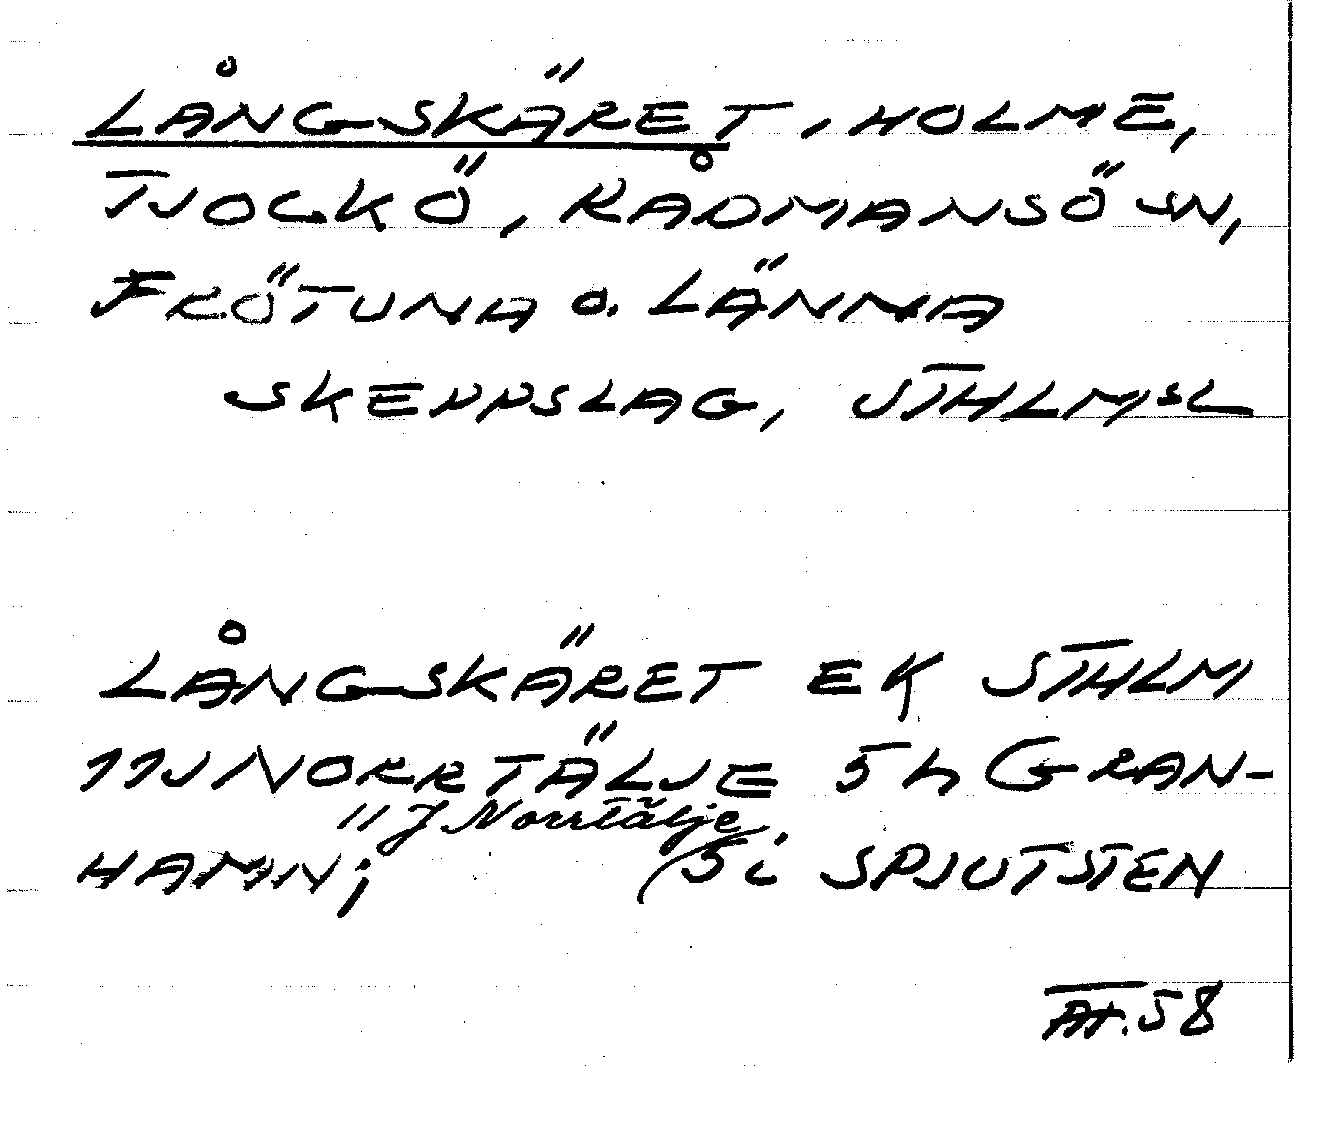 LÅNGSKÄRET, HOLME,
TJOCKÖ, RÅDMANSÖ SN,
FRÖTUNA O. LÄNNA
SKEPPSLAG, STHLMSL
LÅNGSKÄRET EK STHLM
11J NORRTÄLJE 5h GRAN-
11 J Norrtälje
HAMN; 5i SPJUTSTEN
58